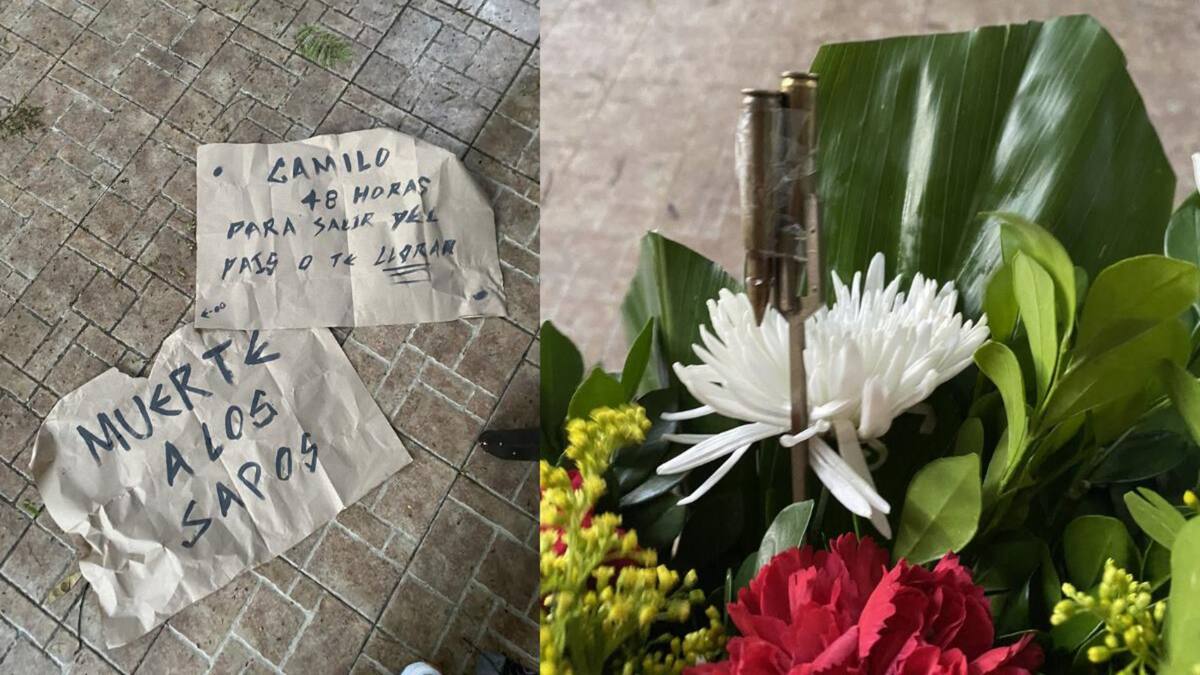 CAMILO
48 HORAS
PARA SALIR DEL
PAÍS O TE LLORAN
MUERTE
A LOS
SAPOS